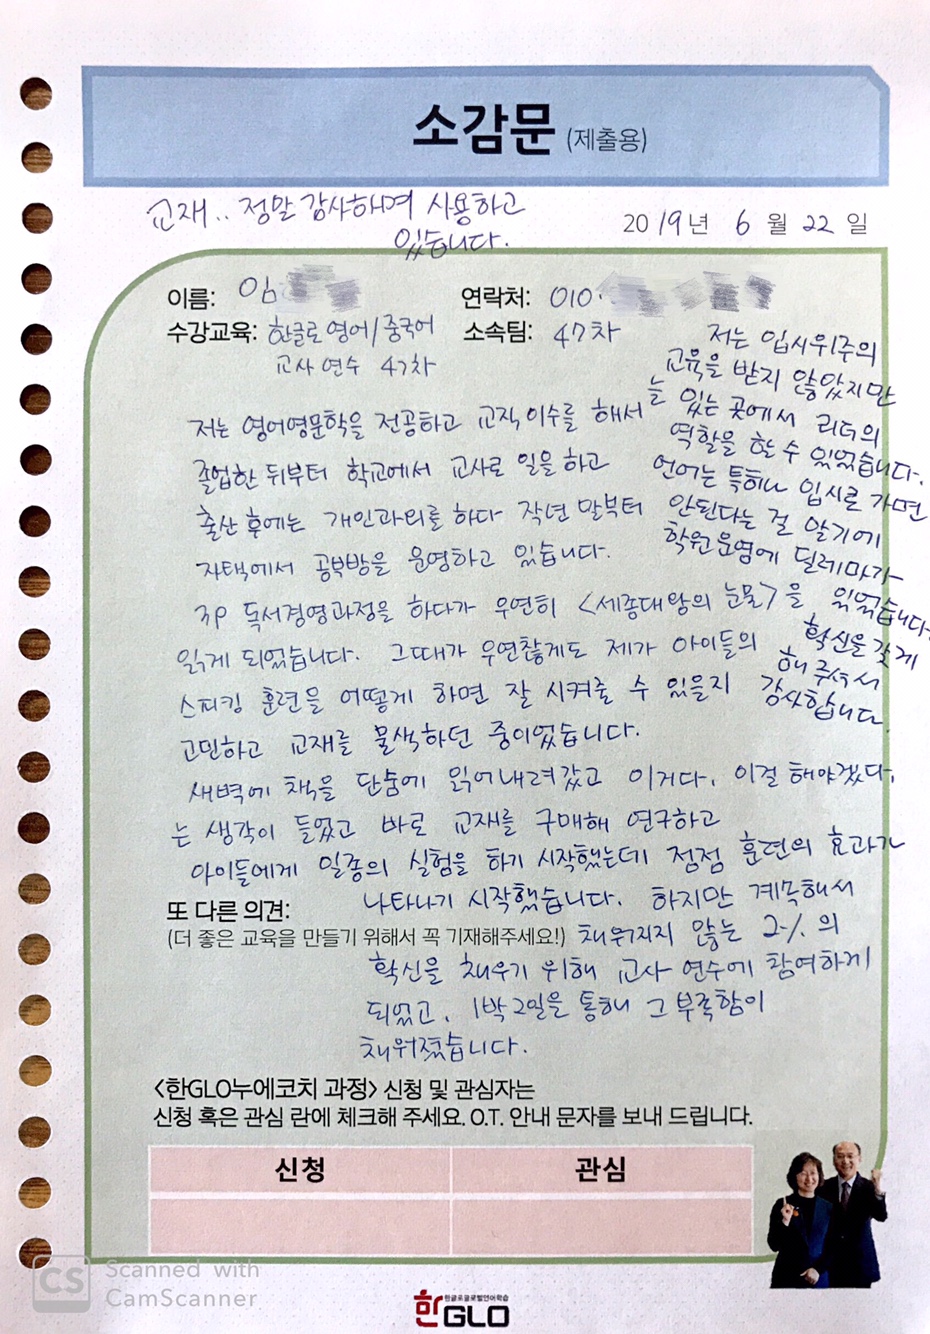 소감문 (제출용)
교재.. 정말 감사하며 사용하고
있습니다.
2019년 6월 22일
이름: 임
연락처: 010.
수강교육: 한글로 영어/중국어
교사 연수 47차
소속팀: 47차
저는 영어영문학을 전공하고 교직이수를 해서
졸업한 뒤부터 학교에서 교사로 일을 하고
출산 후에는 개인과외를 하다 작년 말부터
자택에서 공부방을 운영하고 있습니다.
3P 독서경영과정을 하다가 우연히 <세종대왕의 눈물>을
읽게 되었습니다. 그때가 우연찮게도 제가 아이들의
스피킹 훈련을 어떻게 하면 잘 시켜줄 수 있을지
고민하고 교재를 물색하던 중이었습니다.
새벽에 책을 단숨에 읽어내려갔고 이거다. 이걸 해야겠다.
는 생각이 들었고 바로 교재를 구매해 연구하고
아이들에게 일종의 실험을 하기 시작했는데 점점 훈련의 효과가
나타나기 시작했습니다. 하지만 계속해서
또 다른 의견:
(더 좋은 교육을 만들기 위해서 꼭 기재해주세요!)
채워지지 않는 2%의
혁신을 채우기 위해 교사 연수에 참여하게
되었고, 1박 2일을 통해 그 부족함이
채워졌습니다.
저는 입시위주의
교육을 받지 않았지만
늘 있는 곳에서 리더의
역할을 할 수 있었습니다.
언어는 특히나 입시로 가면
안된다는 걸 알기에
학원운영에 딜레마가
있었습니다.
혁신을 갖게
해 주셔서
감사합니다
<한GLO누에코치 과정> 신청 및 관심자는
신청 혹은 관심 란에 체크해 주세요. O.T. 안내 문자를 보내 드립니다.
신청
관심
CS Scanned with
CamScanner
한글로글로벌언어학습
한GLO